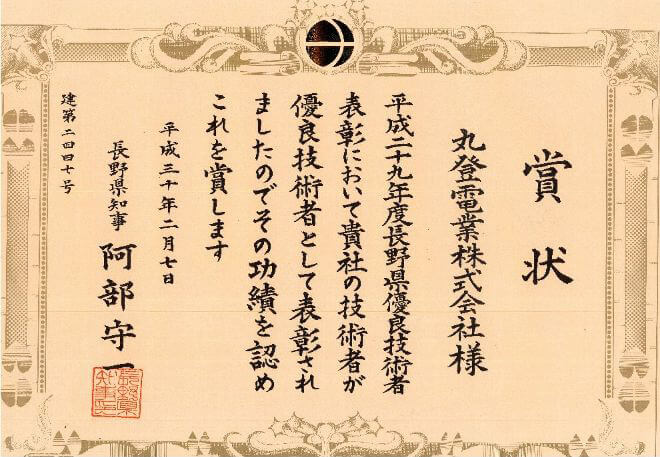 賞状
丸登電業株式会社様
平成二十九年度長野県優良技術者
表彰において貴社の技術者が
優良技術者として表彰され
ましたのでその功績を認め
これを賞します
平成三十年二月七日
長野県知事 阿部守一
長野県知事印
建第二四四十号